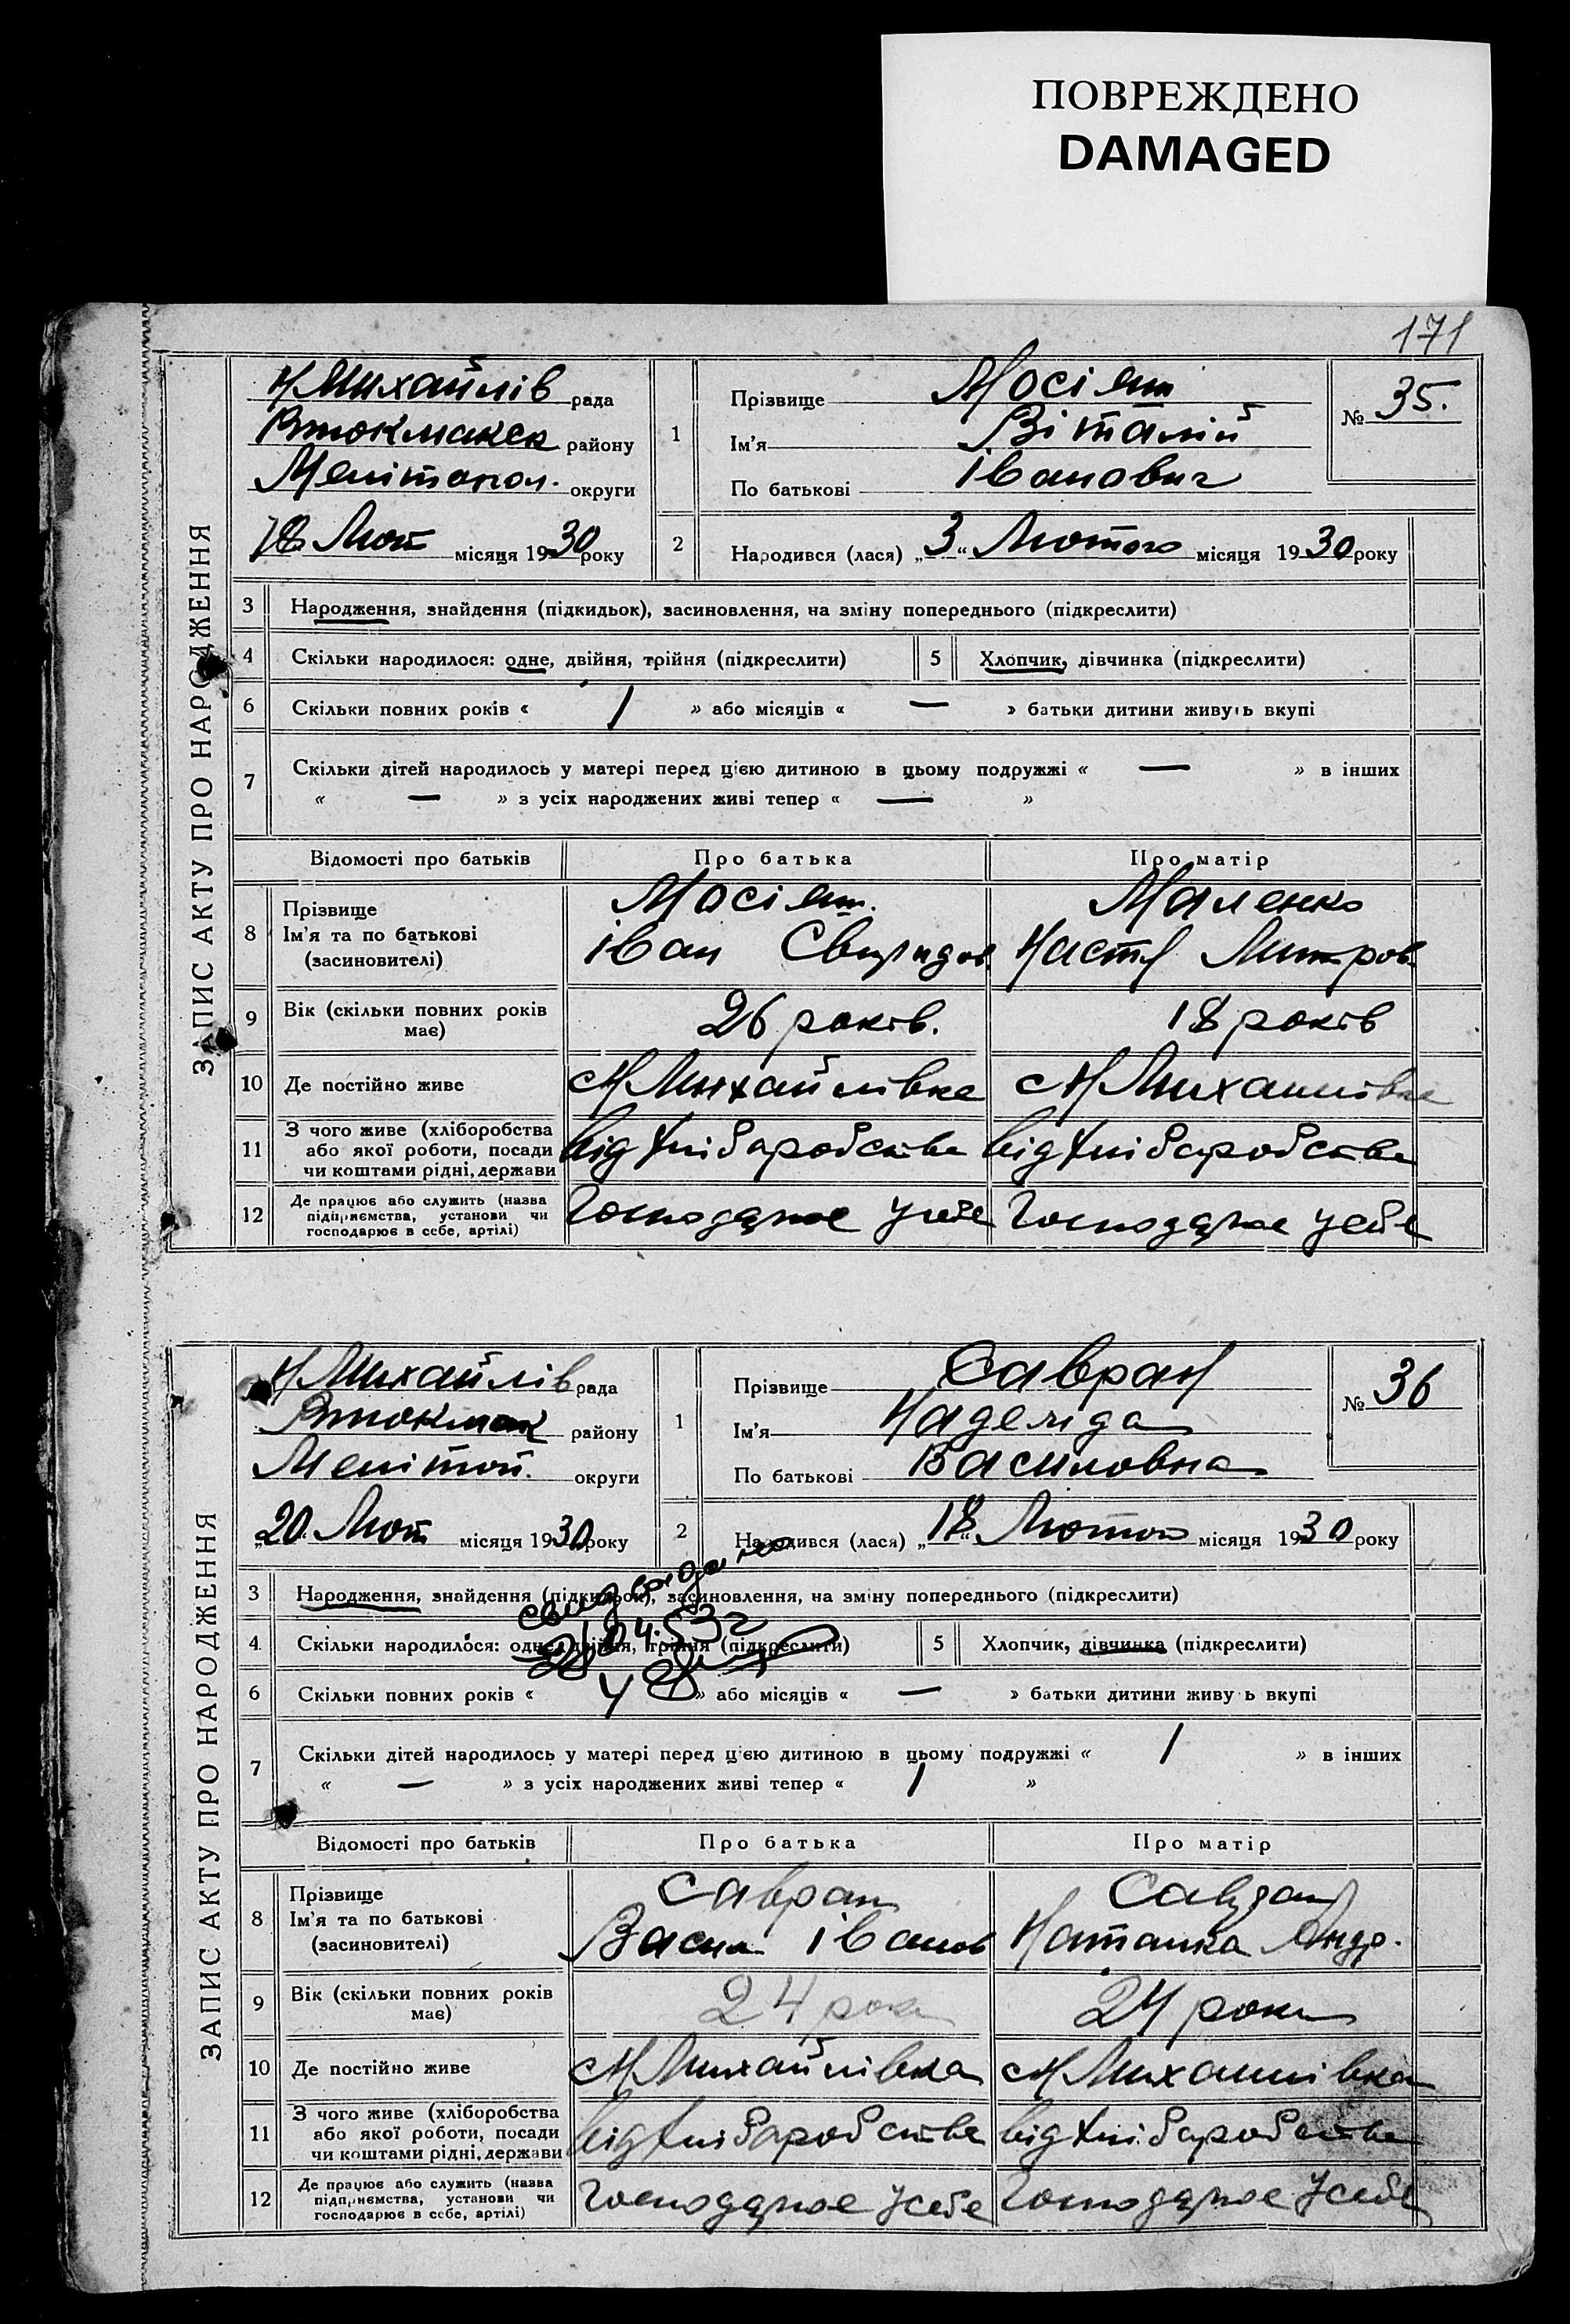 ПОВРЕЖДЕНО
DAMAGED
171
ЗАПИС АКТУ ПРО НАРОДЖЕННЯ
Н Михайлів рада
Втокмакск району
Мелітопол. округи
18 Лют місяця 1930 року
1
Прізвище Мосіяш
Ім'я Віталій
По батькові Іванович
№ 35.
2
Народився (лася) „3“ Лютого місяця 1930 року
3 Народження, знайдення (підкидьок), засиновлення, на зміну попереднього (підкреслити)
4 Скільки народилося: одне, двійня, трійня (підкреслити)
5 Хлопчик, дівчинка (підкреслити)
6 Скільки повних років « 1 » або місяців « — » батьки дитини живуть вкупі
7 Скільки дітей народилось у матері перед цією дитиною в цьому подружжі « — » в інших
« — » з усіх народжених живі тепер « — »
Відомості про батьків Про батька Про матір
8 Прізвище
Ім'я та по батькові
(засиновителі)
Мосіяш.
Іван Свиридов.
Маленко
Настя Дмитров.
9 Вік (скільки повних років
має)
26 років. 18 років
10 Де постійно живе с Н Михайлівка с Н Михайлівка
11 З чого живе (хліборобства
або якої роботи, посади
чи коштами рідні, держави
від хліборобства від хліборобства
12 Де працює або служить (назва
підприємства, установи чи
господарює в себе, артілі)
Господарює у себе Господарює у себе
ЗАПИС АКТУ ПРО НАРОДЖЕННЯ
Н Михайлів рада
Втокмак району
Мелітоп. округи
„20 Лют місяця 1930 року
1
Прізвище Савран
Ім'я Надежда
По батькові Василовна
№ 36
2
Народився (лася) „18“ Лютого місяця 1930 року
3 Народження, знайдення (підкидьок), засиновлення, на зміну попереднього (підкреслити)
4 Скільки народилося: одне, двійня, трійня (підкреслити)
5 Хлопчик, дівчинка (підкреслити)
04.53г
6 Скільки повних років « 4 » або місяців « — » батьки дитини живу ь вкупі
7 Скільки дітей народилось у матері перед цією дитиною в цьому подружжі « 1 » в інших
« — » з усіх народжених живі тепер « 1 »
Відомості про батьків Про батька Про матір
8 Прізвище
Ім'я та по батькові
(засиновителі)
Савран
Васил Іванов
Савран
Наталка Андр.
9 Вік (скільки повних років
має)
24 роки 24 роки
10 Де постійно живе с Н Михайлівка с Н Михайлівка
11 З чого живе (хліборобства
або якої роботи, посади
чи коштами рідні, держави
від хліборобства від хліборобства
12 Де працює або служить (назва
підприємства, установи чи
господарює в себе, артілі)
Господарює у себе Господарює у себе